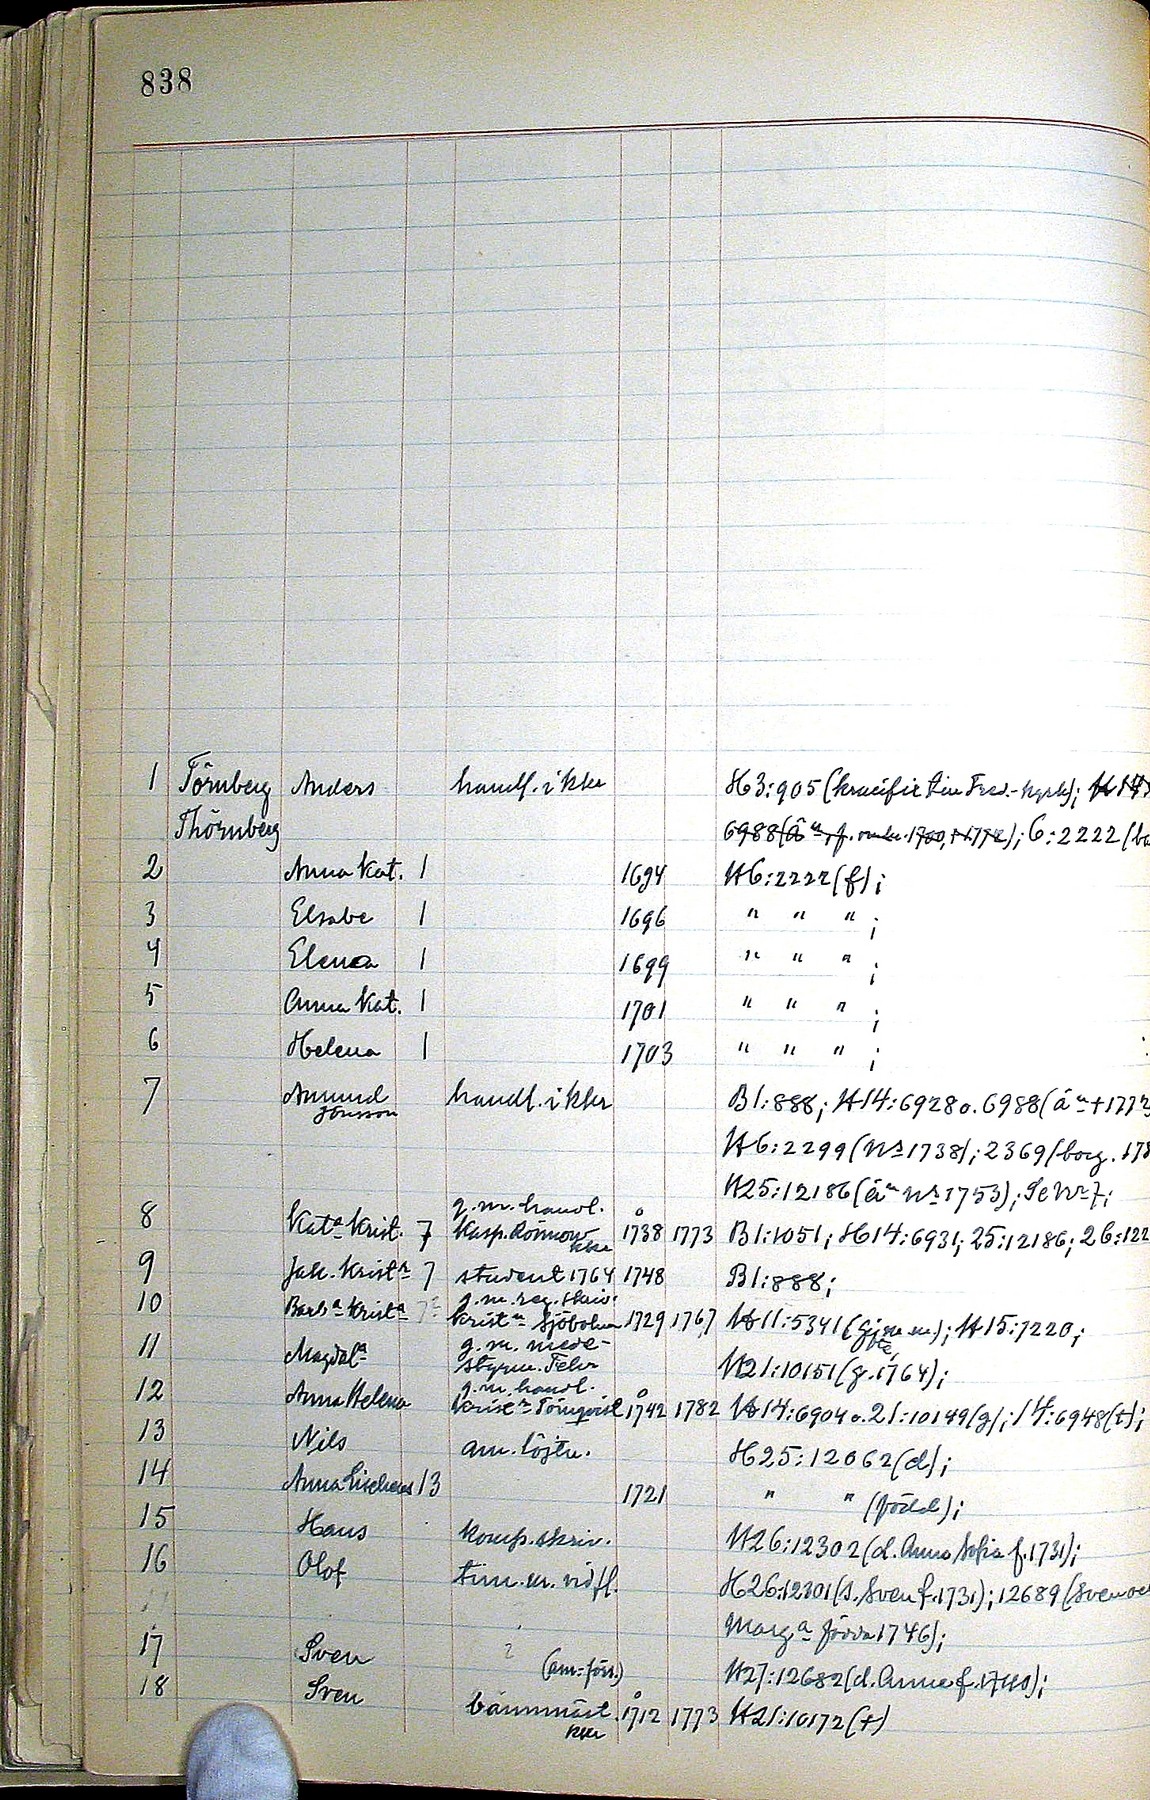 838
1 Törnberg Anders handl. i kkr H3:905 (krucifix tin Fred.-kyrk);
Thörnberg 6988 (ä , f. 1700, 1772); 6:2222 (
2 Anna Kat. 1 1694 H6:2222 (f);
3 Elsabe 1 1696 " " " ;
4 Elena 1 1699 " " " ;
5 Anna Kat. 1 1701 " " " ;
6 Helena 1 1703 " " " ;
7 Amund Jönsson handl. i kkr B1:888; H14:6928 o. 6988 (än †177
H6:2299 (Nr 1738); 2369 (borg. 17
H25:12186 (än Nr 1753); Se Nr 7;
8 Kata Krist. 7 g. m. handl. Kasp. Rönnow kkr 1738 1773 B1:1051; H14:6931; 25:12186; 26:122
9 Jak. Kristn 7 student 1764 1748 B1:888;
10 Barba Krista 7 g. m. reg. skriv. Kristn Sjöbohm 1729 1767 H11:5341 (gifte m.); H15:7220;
11 Magdala g. m. mede- styrm. Fehr H21:10151 (g. 1764);
12 Anna Helena g. m. handl. Kristn Törnqvist 1742 1782 H14:6904 o. 21:10149 (g); 14:6948 (†);
13 Nils am. löjtn. H25:12062 (d);
14 Anna 13 1721 " " (född);
15 Hans komp. skriv. H26:12302 (d. Anna Sofia f. 1731);
16 Olof tim. m. vid fl. H26:12301 (s. Sven f. 1731); 12689 (Sven oc
Marga födda 1746);
17 Sven ? (am: förr.) H27:12682 (d. Anna f. 1740);
18 Sven kkr 1712 1773 H21:10172 (†)